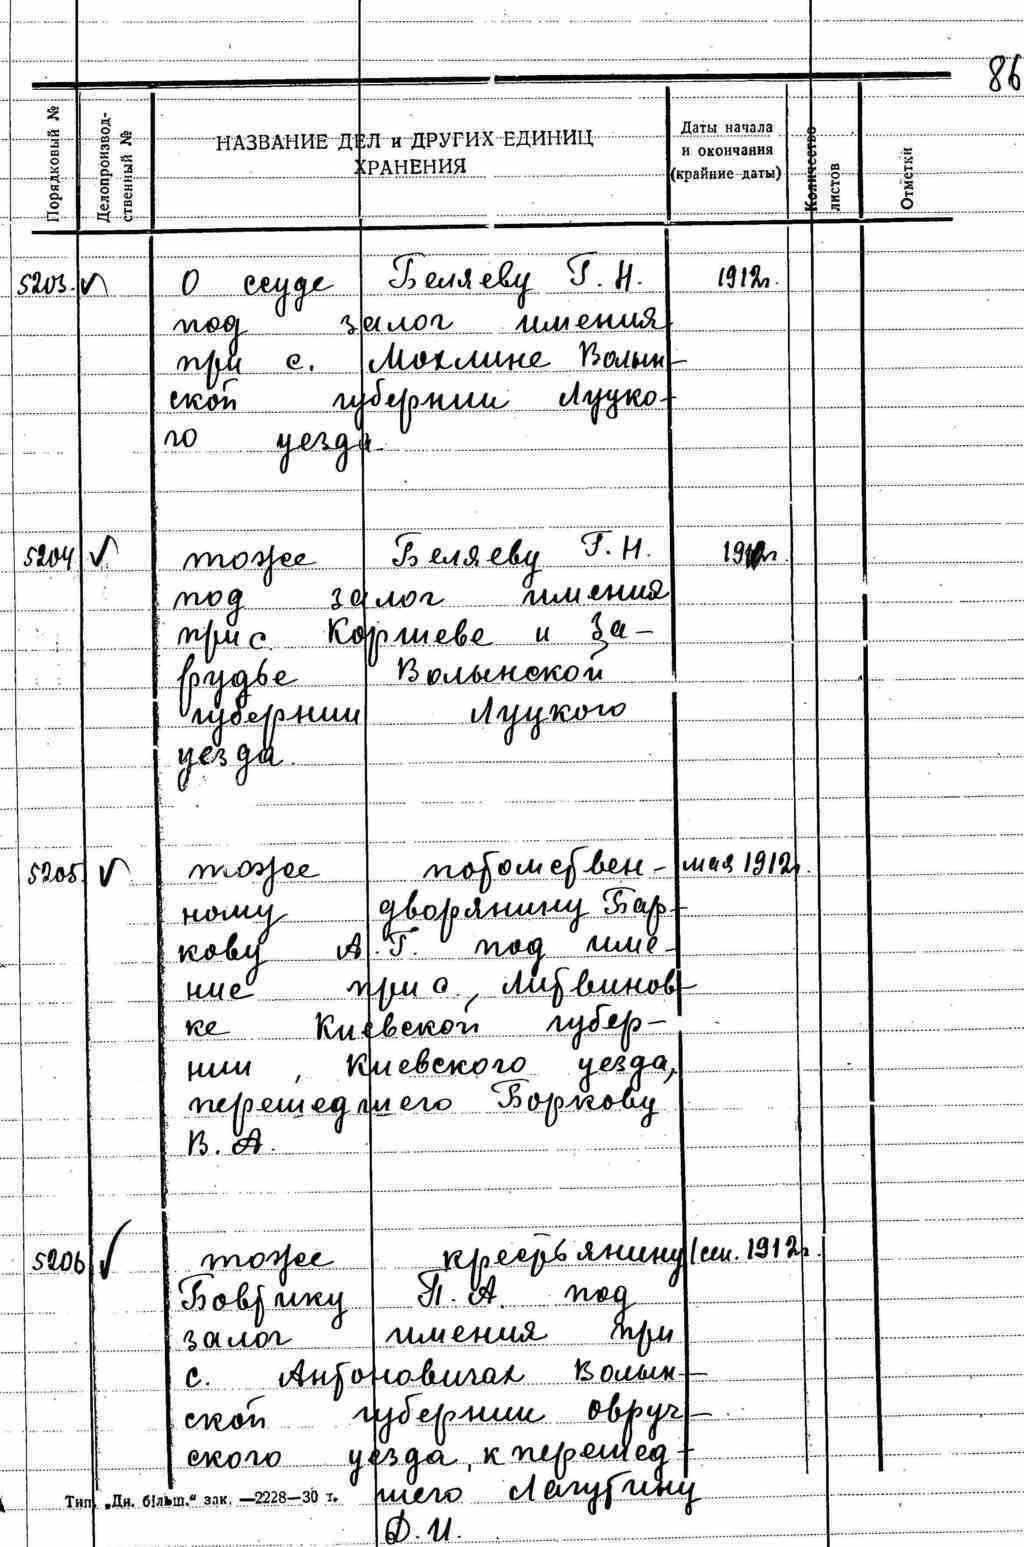 86
Порядковый №
Делопроизвод-
ственный №
НАЗВАНИЕ ДЕЛ и ДРУГИХ ЕДИНИЦ
ХРАНЕНИЯ
Даты начала
и окончания
(крайние даты)
Количество
листов
Отметки
5203. О ссуде Беляеву Г. Н. 1912г.
под залог имения
при с. Мохлине Волын-
ской губернии Луцко-
го уезда.
5204 тоже Беляеву Г. Н. 1912г.
под залог имения
при с. Коршеве и За-
рудье Волынской
губернии Луцкого
уезда.
5205 тоже потомствен- мая 1912г.
ному дворянину Бар-
кову А. Г. под име-
ние при с. Литвинов-
ке Киевской губер-
нии, Киевского уезда,
перешедшего Боркову
В. А.
5206 тоже крестьянину сен. 1912г.
Бовтику П. А. под
залог имения при
с. Антоновичах Волын-
ской губернии овруч-
ского уезда, к перешед-
шего Лагутину
Д. И.
Тип. „Дн. більш.“ зак. —2228—30 т.